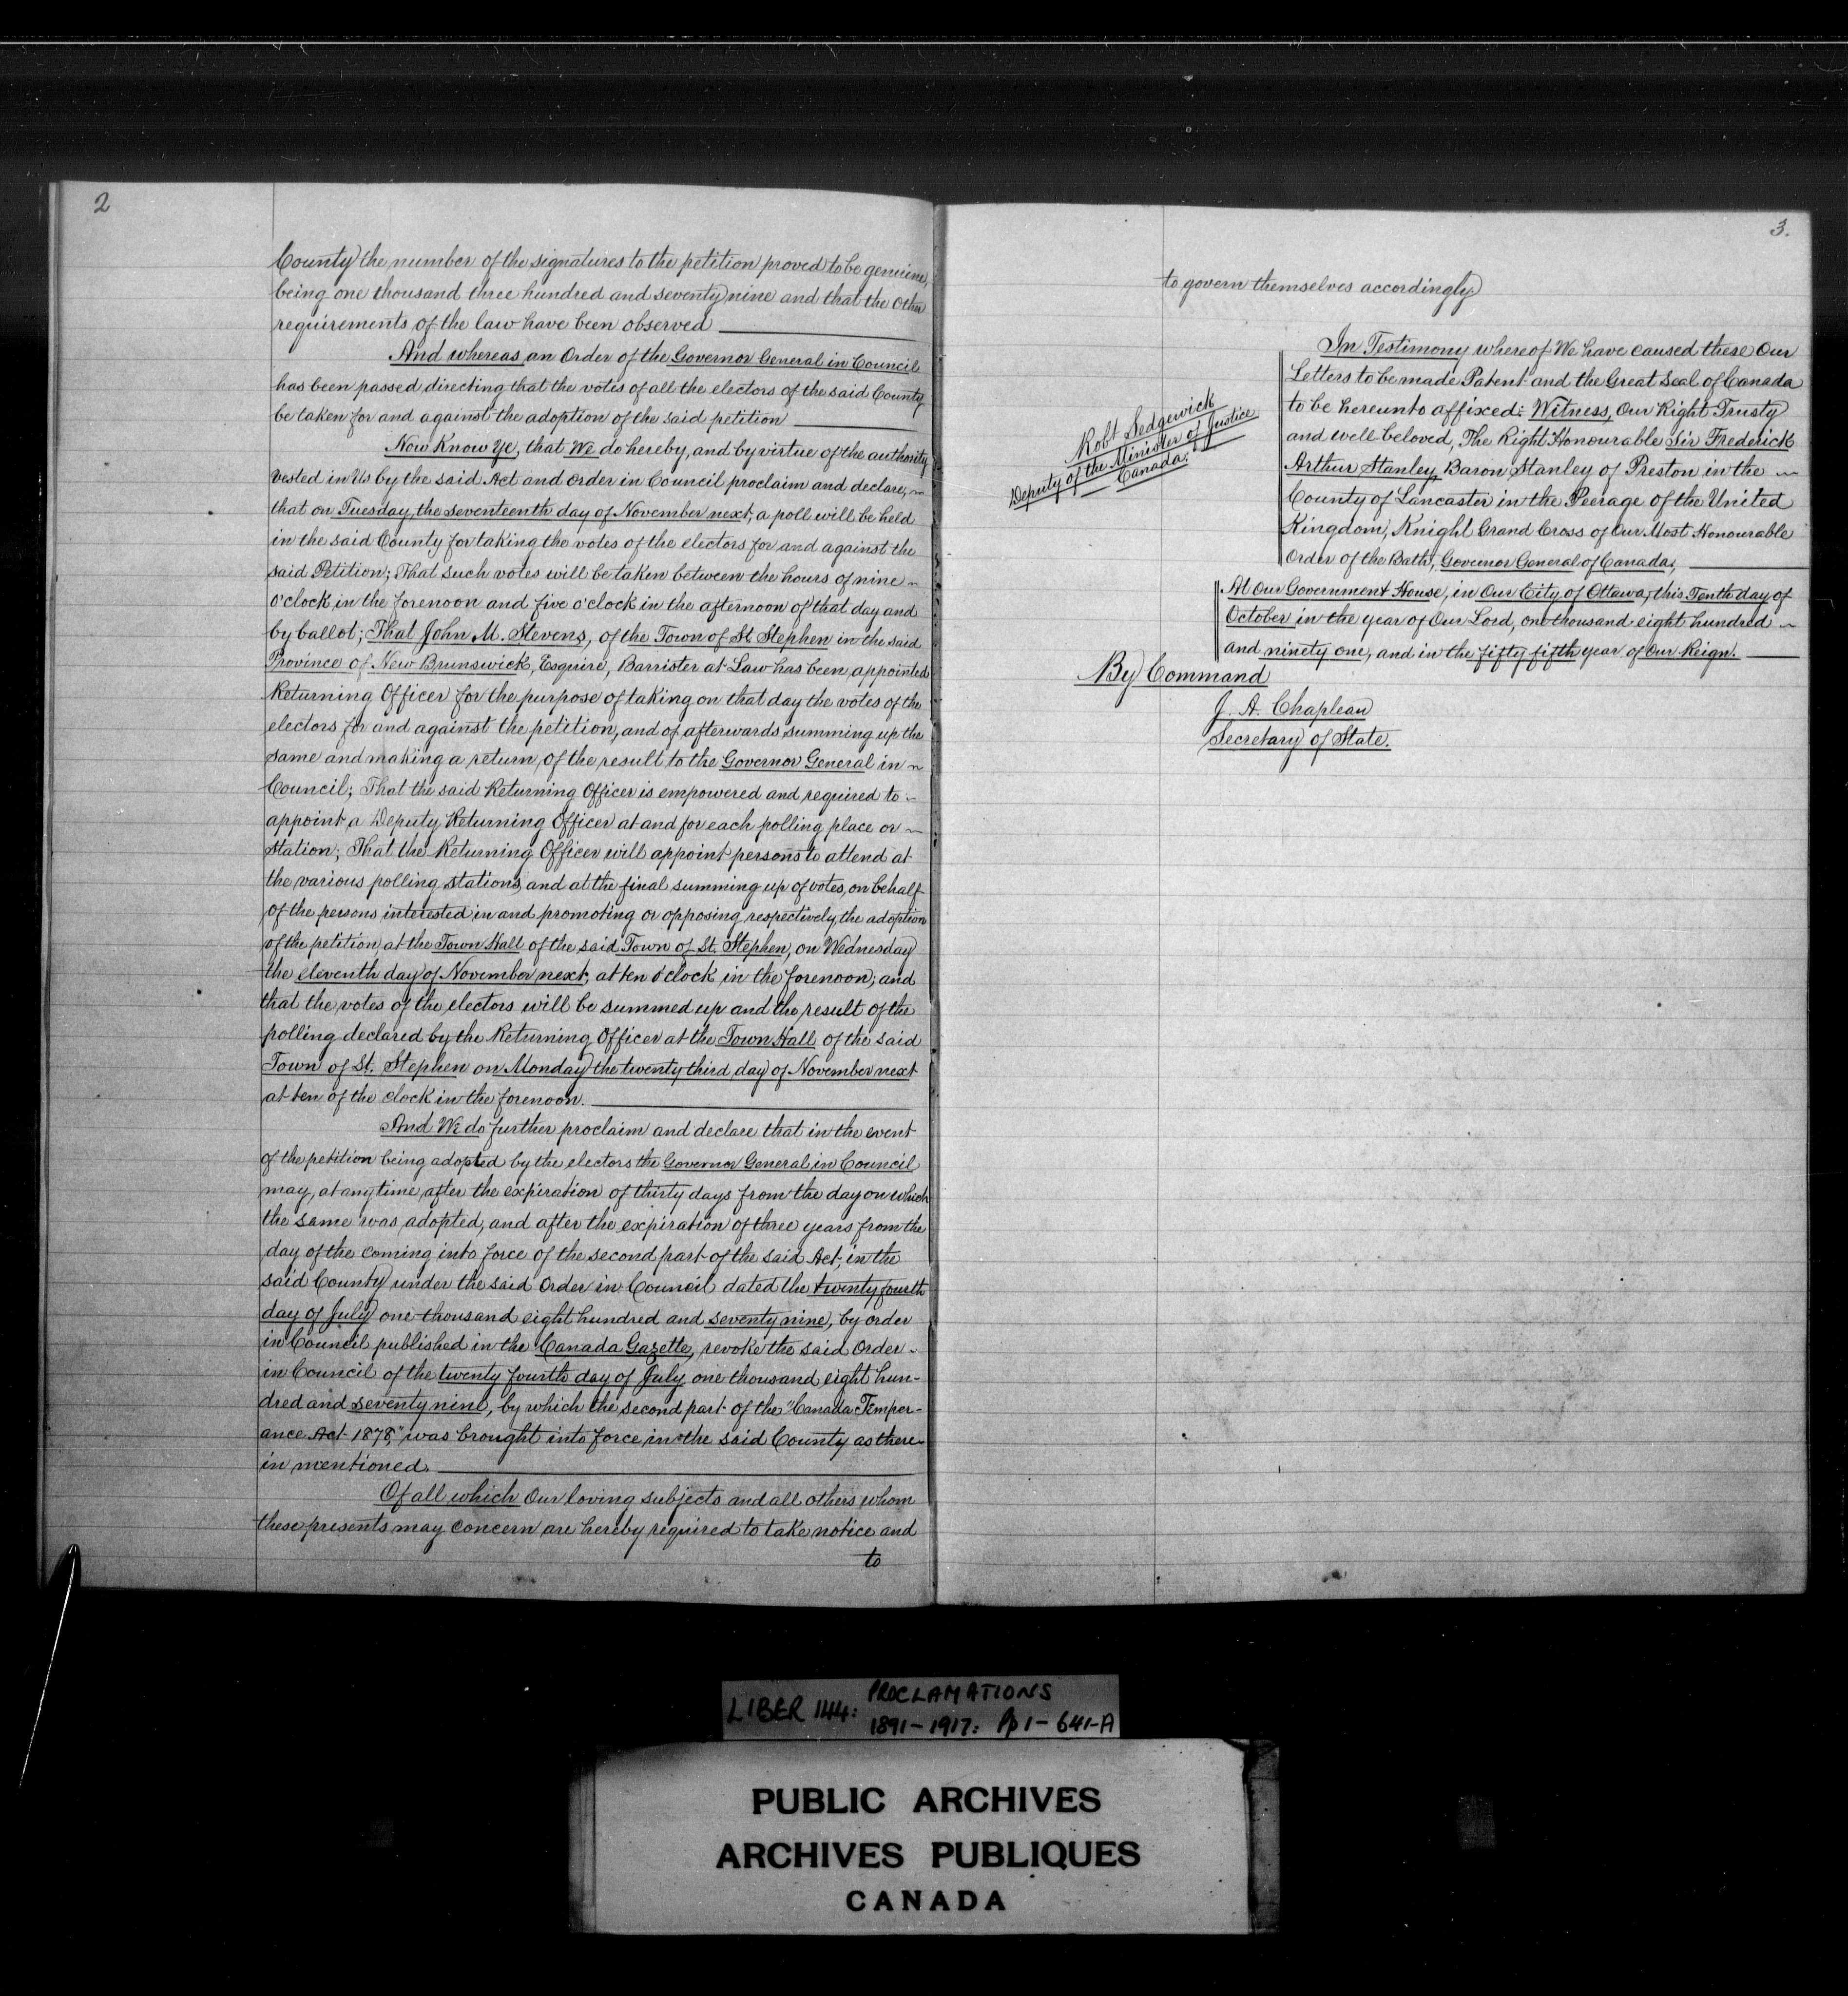 2
County the number of the signatures to the petition proved to be genuine,
being one thousand three hundred and seventy nine and that the other
requirements of the law have been observed
And whereas an Order of the Governor General in Council
has been passed directing that the votes of all the electors of the said County
be taken for and against the adoption of the said petition
Now Know Ye, that We do hereby, and by virtue of the authority
vested in Us by the said Act and Order in Council proclaim and declare,
that on Tuesday, the seventeenth day of November next, a poll will be held
in the said County for taking the votes of the electors for and against the
said Petition; That such votes will be taken between the hours of nine
o'clock in the forenoon and five o'clock in the afternoon of that day and
by ballot; That John M. Stevens, of the Town of St. Stephen in the said
Province of New Brunswick, Esquire, Barrister at Law has been appointed
Returning Officer for the purpose of taking on that day the votes of the
electors for and against the petition, and of afterwards summing up the
same and making a return of the result to the Governor General in
Council; That the said Returning Officer is empowered and required to
appoint a Deputy Returning Officer at and for each polling place or
station; That the Returning Officer will appoint persons to attend at
the various polling stations and at the final summing up of votes, on behalf
of the persons interested in and promoting or opposing respectively, the adoption
of the petition at the Town Hall of the said Town of St. Stephen, on Wednesday
the eleventh day of November next, at ten o'clock in the forenoon; and
that the votes of the electors will be summed up and the result of the
polling declared by the Returning Officer at the Town Hall of the said
Town of St. Stephen on Monday the twenty third day of November next
at ten of the clock in the forenoon.
And We do further proclaim and declare that in the event
of the petition being adopted by the electors the Governor General in Council
may, at any time after the expiration of thirty days from the day on which
the same was adopted, and after the expiration of three years from the
day of the coming into force of the second part of the said Act, in the
said County under the said Order in Council dated the twenty fourth
day of July one thousand eight hundred and seventy nine, by order
in Council published in the Canada Gazette, revoke the said Order
in Council of the twenty fourth day of July one thousand eight hun-
dred and seventy nine, by which the second part of the "Canada Temper-
ance Act 1878," was brought into force in the said County as there-
in mentioned.
Of all which Our loving subjects and all others whom
these presents may concern are hereby required to take notice and
to
3.
to govern themselves accordingly.
In Testimony whereof We have caused these Our
Letters to be made Patent and the Great Seal of Canada
to be hereunto affixed: Witness, Our Right Trusty
and well beloved, The Right Honourable Sir Frederick
Arthur Stanley, Baron Stanley of Preston in the
County of Lancaster in the Peerage of the United
Kingdom, Knight Grand Cross of Our Most Honourable
Order of the Bath, Governor General of Canada,
Robt Sedgewick
Deputy of the Minister of Justice
Canada.
At Our Government House, in Our City of Ottawa, this Tenth day of
October in the year of Our Lord, one thousand eight hundred
and ninety one, and in the fifty fifth year of Our Reign.
By Command
J. A. Chapleau
Secretary of State.
LIBER 144: PROCLAMATIONS
1891-1917: Pp 1-641-A
PUBLIC ARCHIVES
ARCHIVES PUBLIQUES
CANADA